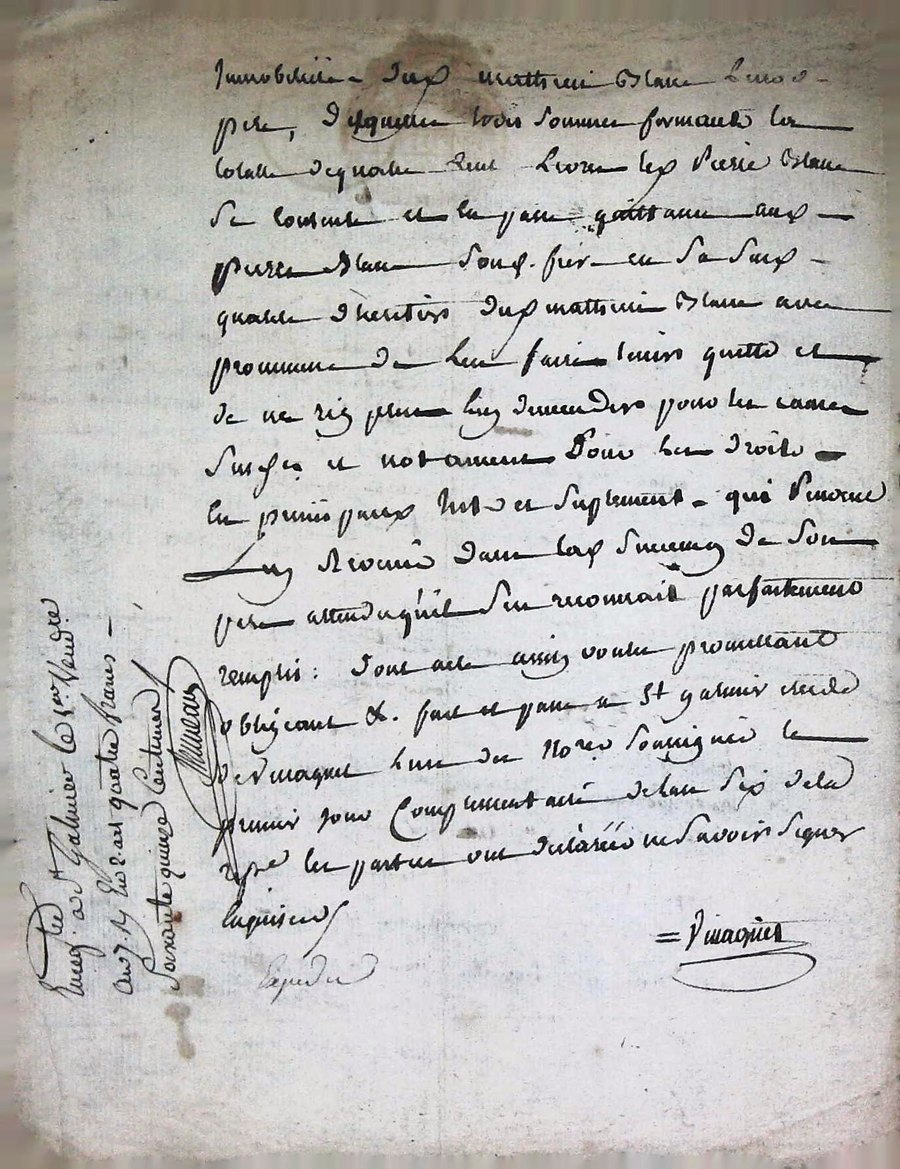 immobiliaire dud mathieu Blanc
pere, desquelles trois sommes formants la
totalle de quatre cent Livres led Pierre Blanc
se contente et en passe quittance aux
pierre Blanc son d. frere en sa susd
qualité d'heritier dud mathieu Blanc avec
promesse de l'en faire tenir quitte et
de ne rien plus luy demander pour les causes
susd. et notament Pour les droits
en principaux et suplement qui Peuvent
Luy revenir dans lad succession de son
pere attendu qu'il s'en reconnait parfaitement
remplis : Dont acte ainsy voulu promettant
obligeant &. fait et passé a St galmier etude
de Vinagret l'un des Nores soussignés le
premier jour Complementaire de l'an six de la
repe. les parties ont déclarée ne savoir signer
enquises
= Vinagret
Expedié
Enregtré a St Galmier le 1er Vendre
an 7. fo 14 Ro 2 art quatre francs
Soixante quinze Centimes